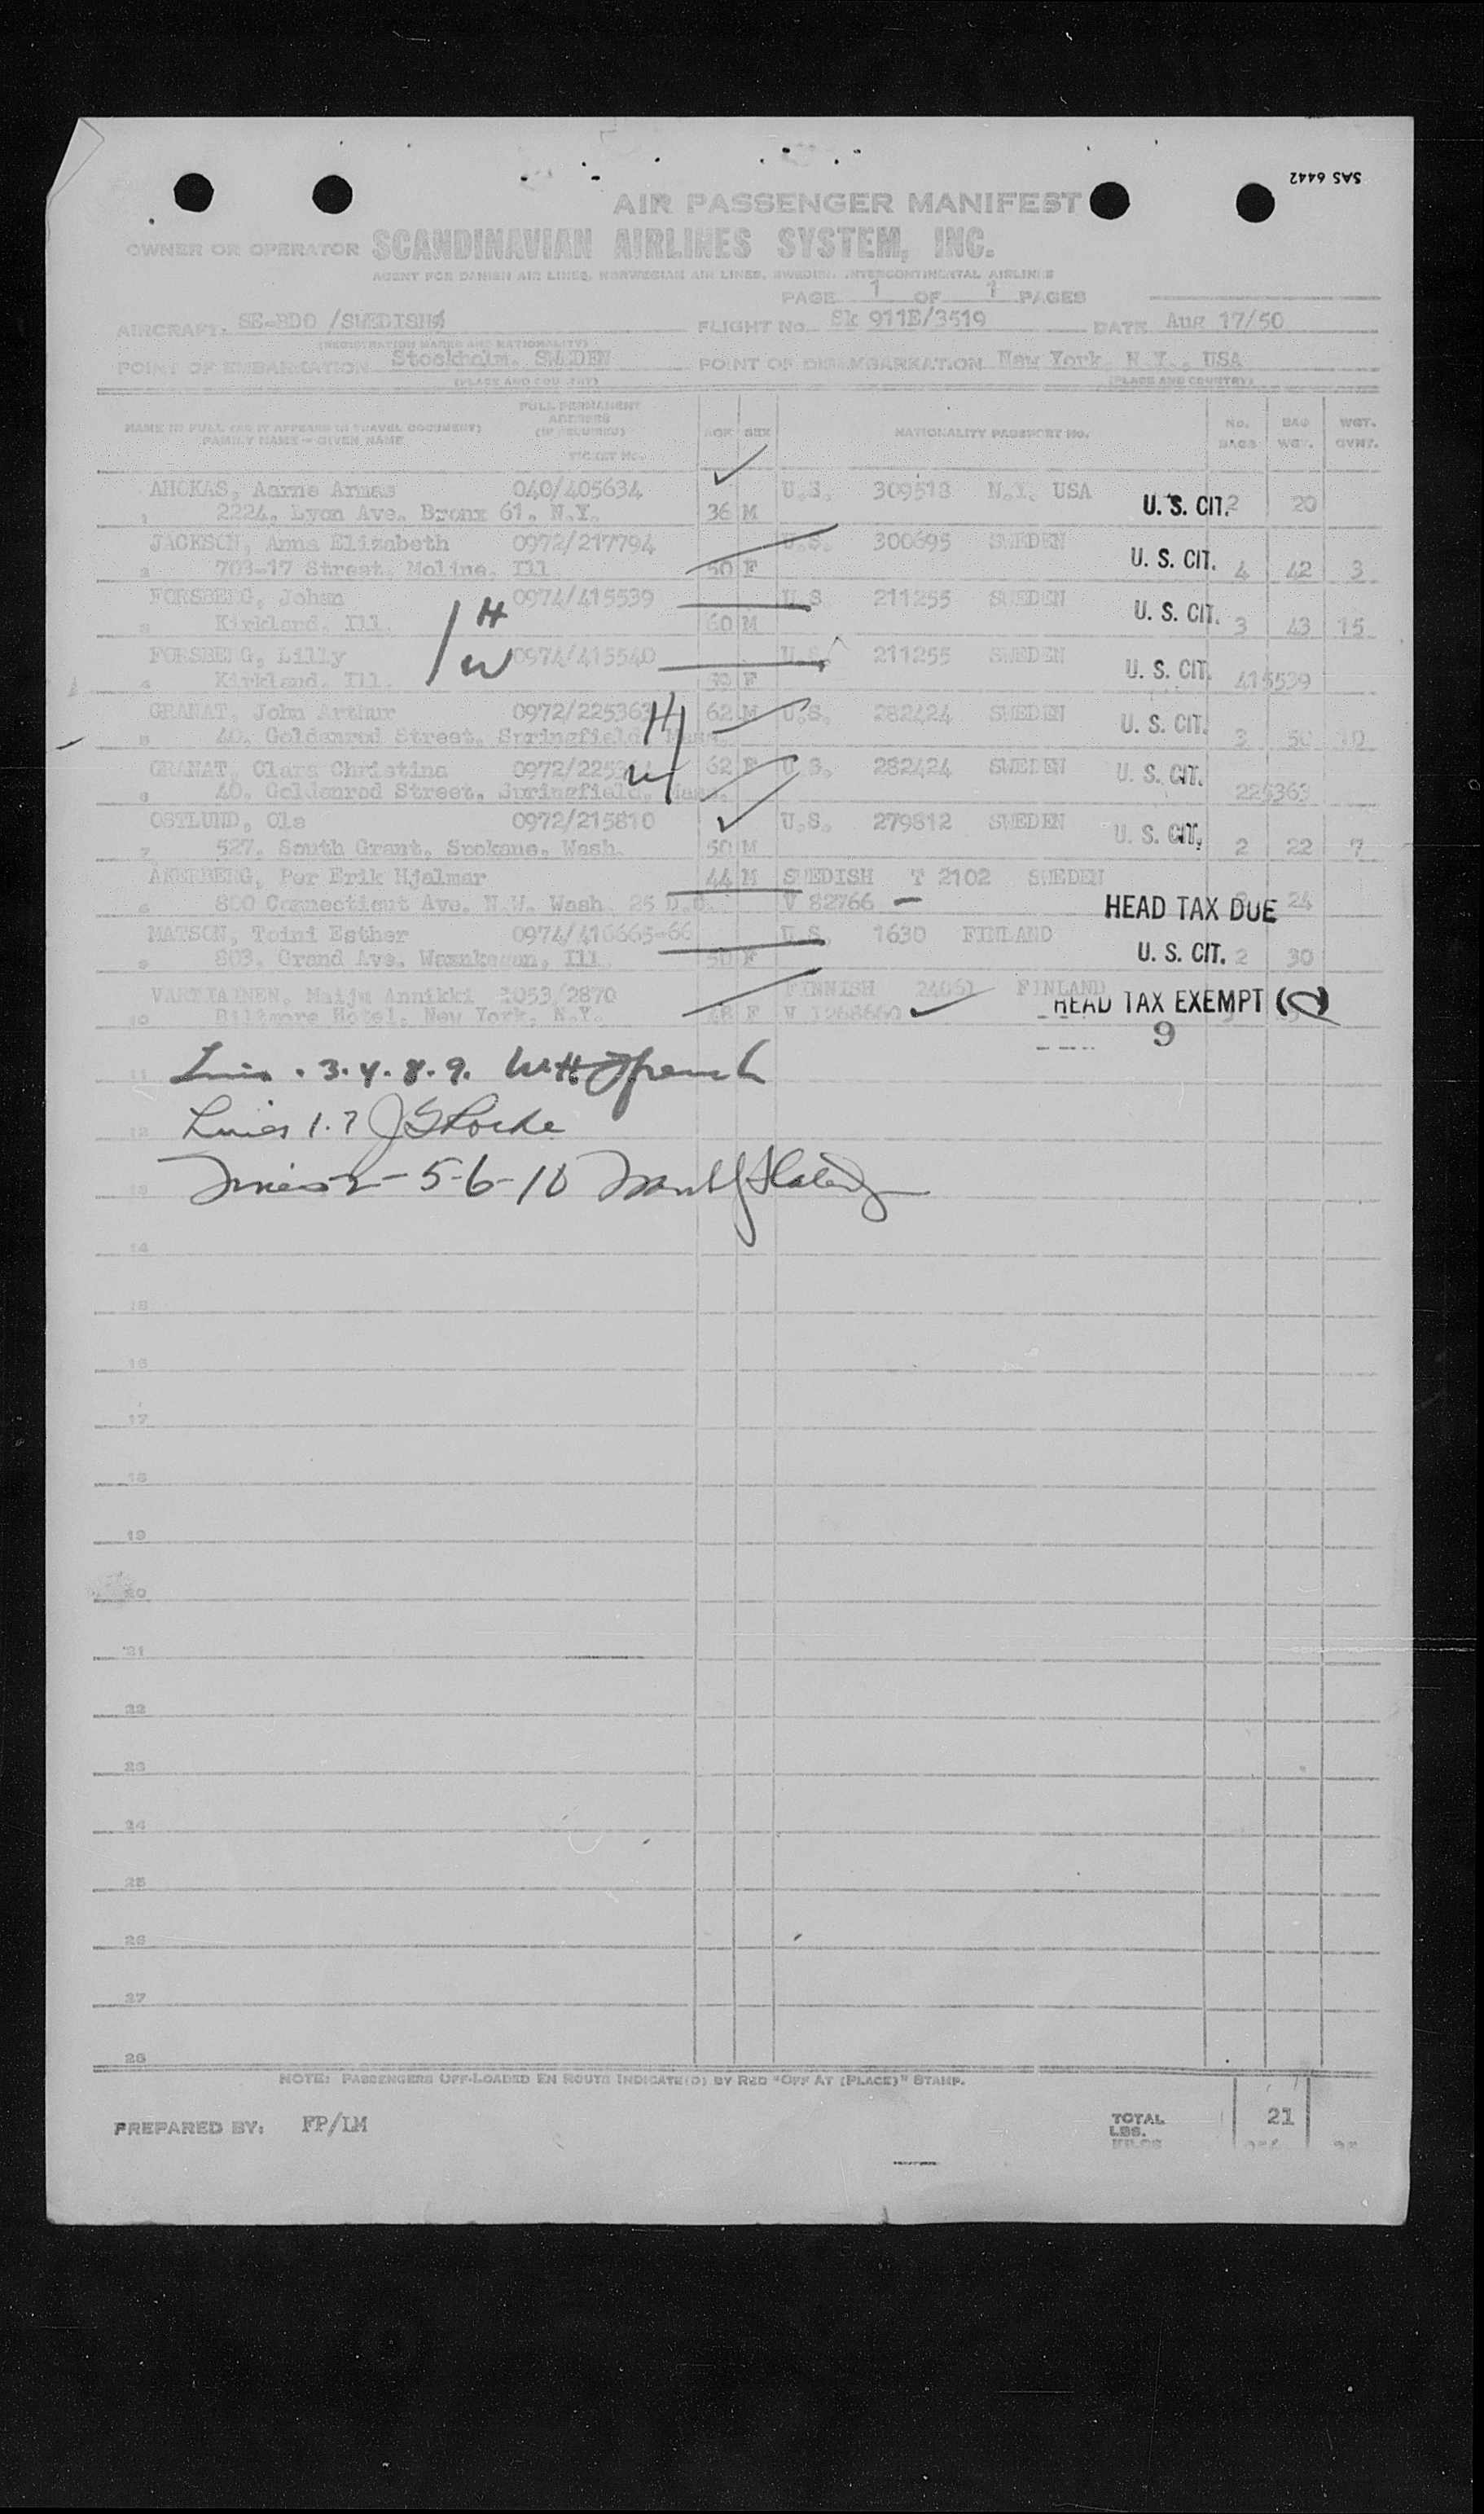 SAS 6442
AIR PASSENGER MANIFEST
OWNER OR OPERATOR SCANDINAVIAN AIRLINES SYSTEM, INC.
AGENT FOR DANISH AIR LINES, NORWEGIAN AIR LINES, SWEDISH INTERCONTINENTAL AIRLINES
PAGE 1 OF 1 PAGES
AIRCRAFT. SE-BDO /SWEDISH FLIGHT No. Sk 911E/3519 DATE Aug 17/50
(REGISTRATION MARKS AND NATIONALITY)
POINT OF EMBARKATION Stockholm, SWEDEN POINT OF DISEMBARKATION New York, N.Y., USA
(PLACE AND COUNTRY) (PLACE AND COUNTRY)
NAME IN FULL (AS IT APPEARS IN TRAVEL DOCUMENT) FAMILY NAME - GIVEN NAME FULL PERMANENT ADDRESS (IF REQUIRED) TICKET No. AGE SEX NATIONALITY PASSPORT No. No. BAGS BAG WGT. WGT. OVWT.
AHOKAS, Aarne Armas 040/405634 U.S. 309518 N.Y. USA
1 2224, Lyon Ave. Bronx 61, N.Y. 36 M U. S. CIT. 2 20
JACKSON, Anna Elizabeth 0972/217794 U.S. 300695 SWEDEN
2 703-17 Street, Moline, Ill 50 F U. S. CIT. 4 42 3
FORSBERG, Johan 0974/415539 U.S 211255 SWEDEN
3 Kirkland, Ill. H 60 M U. S. CIT. 3 43 15
FORSBERG, Lilly W 0974/415540 U.S. 211255 SWEDEN
4 Kirkland, Ill. F U. S. CIT. 415539
GRANAT, John Arthur 0972/225363 H 62 M U.S. 282424 SWEDEN
5 40, Goldenrod Street, Springfield, Mass. U. S. CIT. 3 50 10
GRANAT, Clara Christina 0972/225 W 62 F U.S. 282424 SWEDEN
6 40, Goldenrod Street, Springfield, Mass. U. S. CIT. 225363
OSTLUND, Ole 0972/215810 U.S. 279812 SWEDEN
7 527, South Grant, Spokane, Wash. 50 M U. S. CIT. 2 22 7
AKERBERG, Per Erik Hjalmar 44 M SWEDISH T 2102 SWEDEN
8 800 Connecticut Ave. N.W. Wash. 25 D.C. V 82766 — HEAD TAX DUE 24
MATSON, Toini Esther 0974/410665-66 U.S. 1630 FINLAND
9 803, Grand Ave. Waunkegan, Ill. 50 F U. S. CIT. 2 30
VARTIAINEN, Maiju Annikki 1053/2870 FINNISH 24061 FINLAND
10 Biltmore Hotel, New York, N.Y. F V HEAD TAX EXEMPT
9
11 3. 4. 8. 9. W.H. French
12 Lines 1. 7 J G Locke
13 Lines 2 - 5-6-10
14
15
16
17
18
19
20
21
22
23
24
25
26
27
28
NOTE: PASSENGERS OFF-LOADED EN ROUTE INDICATE(D) BY RED "OFF AT (PLACE)" STAMP.
PREPARED BY: FP/LM TOTAL 21
LBS.
KILOS